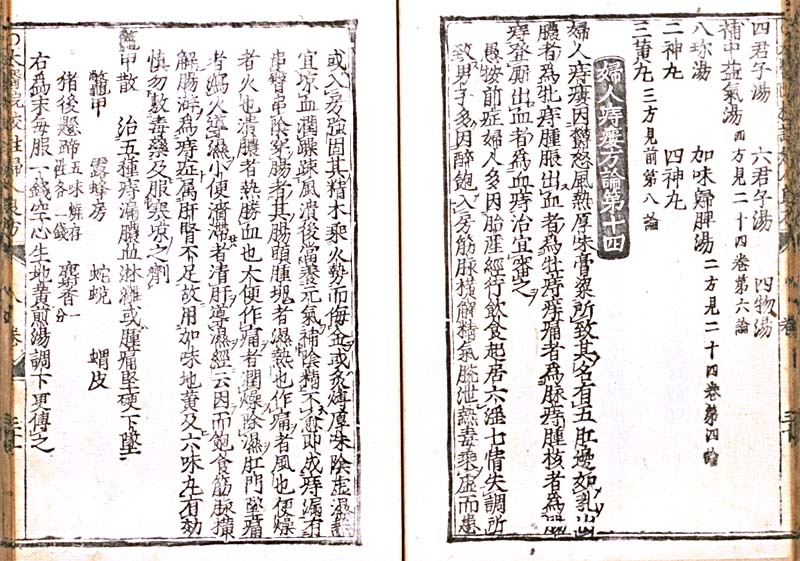 四君子湯　六君子湯　四物湯
補中益氣湯 四方見二十四卷第六論
八珎湯　加味歸脾湯 二方見二十四卷第四論
二神丸　四神丸
三黃丸 三方見前第八論
婦人痔瘻方論第十四
婦人痔瘻因欝怒風熱厚味膏粱所致其名有五肛邊如乳出
膿者爲牝痔腫脹出血者爲牡痔痒痛者爲脉痔腫核者爲腸
痔登厠出血者爲血痔治宜審之
愚按前症婦人多因胎産經行飲食起居六淫七情失調所
致男子多因醉飽入房筋脉橫解精氣脫泄熱毒乘虛而患
或入房強固其精木乘火勢而侮金或炙煿厚味陰虛濕熱
宜凉血潤躁踈風潰後當養元氣補陰精不愈即成痔漏有
串臀串陰穿腸者其腸頭腫塊者濕熱也作痛者風也便燥
者火也潰膿者熱勝血也大便作痛者潤燥除濕肛門墜痛
者瀉火導濕小便濇滯者清肝導濕經云因而飽食筋脉橫
解腸澼爲痔症屬肝腎不足故用加味地黃及六味丸有効
慎勿敷毒藥及服寒凉之劑
鱉甲散　治五種痔漏膿血淋漓或腫痛堅硬下墜
鱉甲　露蜂房　蛇蛻　蝟皮
猪後懸蹄 五味燒存性各一錢　麝香一分
右爲末每服一錢空心生地黃煎湯調下更傅之